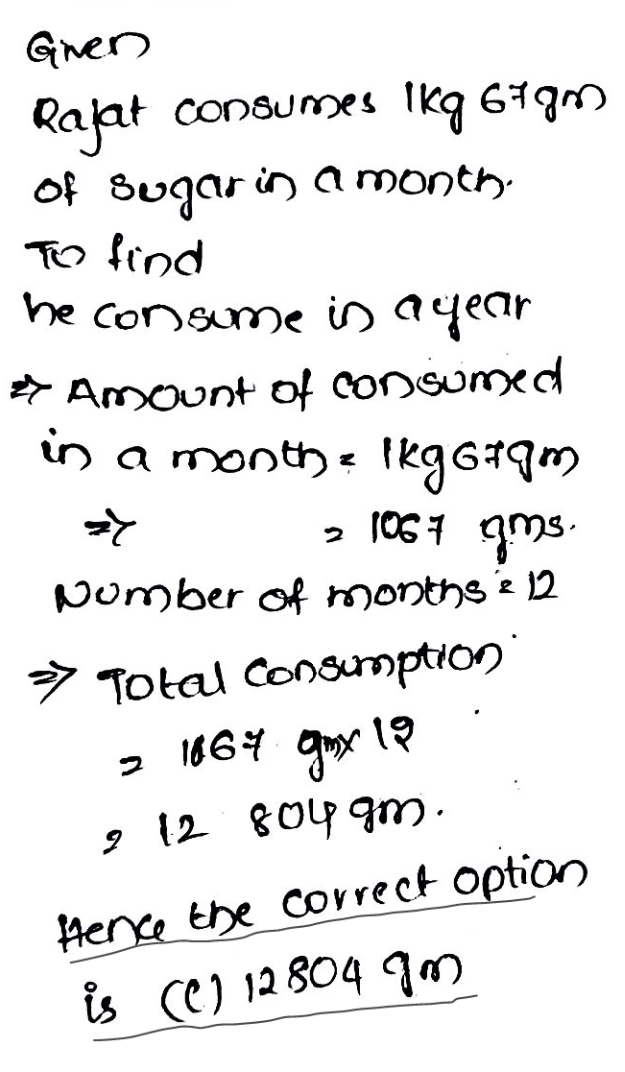 Given
Rajat consumes 1kg 67gm
of sugar in a month.
To find
he consume in a year
⇒ Amount of consumed
in a month = 1kg 67gm
⇒ = 1067 gms.
Number of months = 12
⇒ Total consumption
= 1067 gm x 12
= 12 804 gm.
Hence the correct option
is (C) 12804 gm